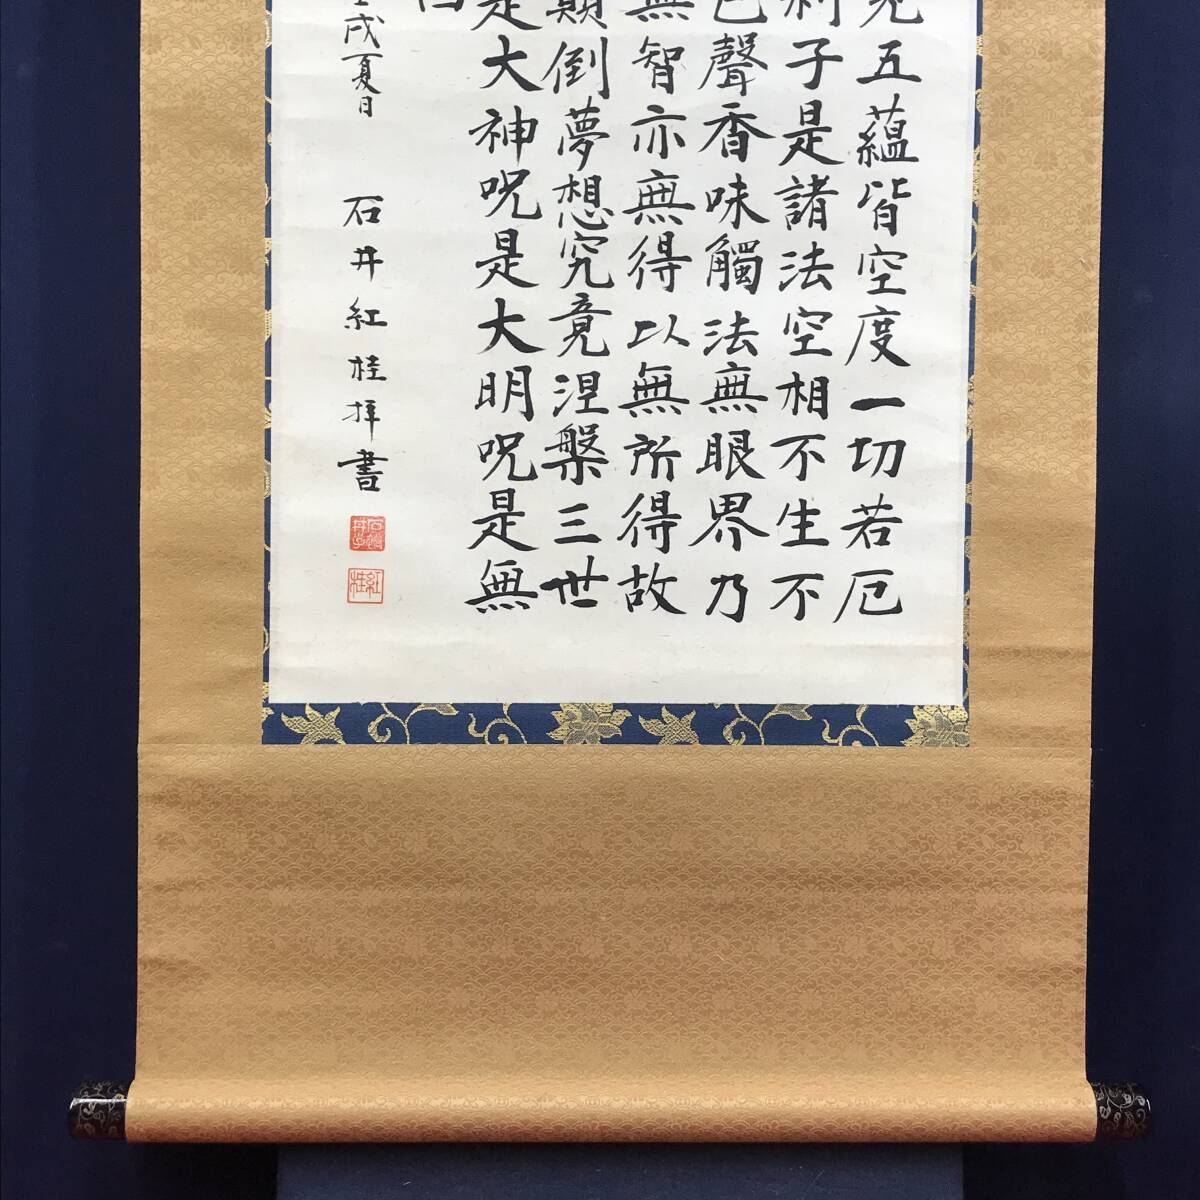 見五蘊皆空度一切若厄
利子是諸法空相不生不
色聲香味觸法無眼界乃
無智亦無得以無所得故
顛倒夢想究竟涅槃三世
是大神呪是大明呪是無
曰
壬戌夏日 石井紅桂拝書
紅桂